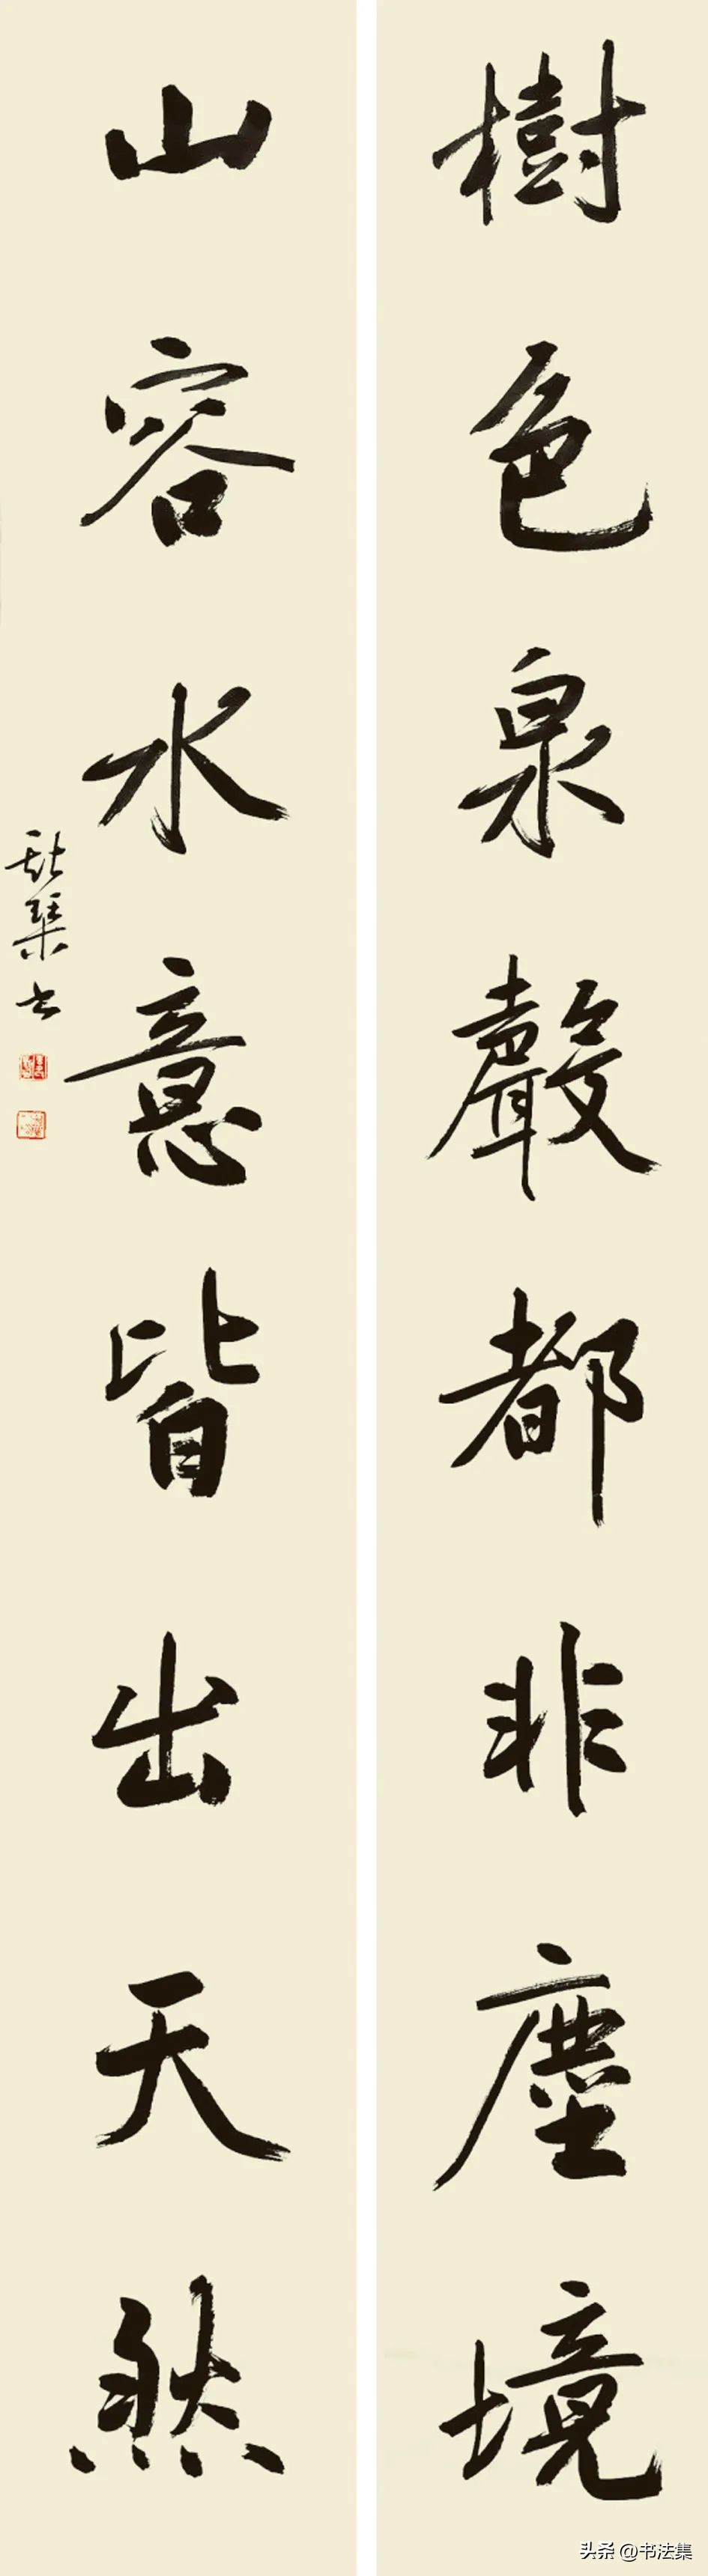 樹色泉聲都非塵境
山容水意皆出天然
书
头条 @书法集